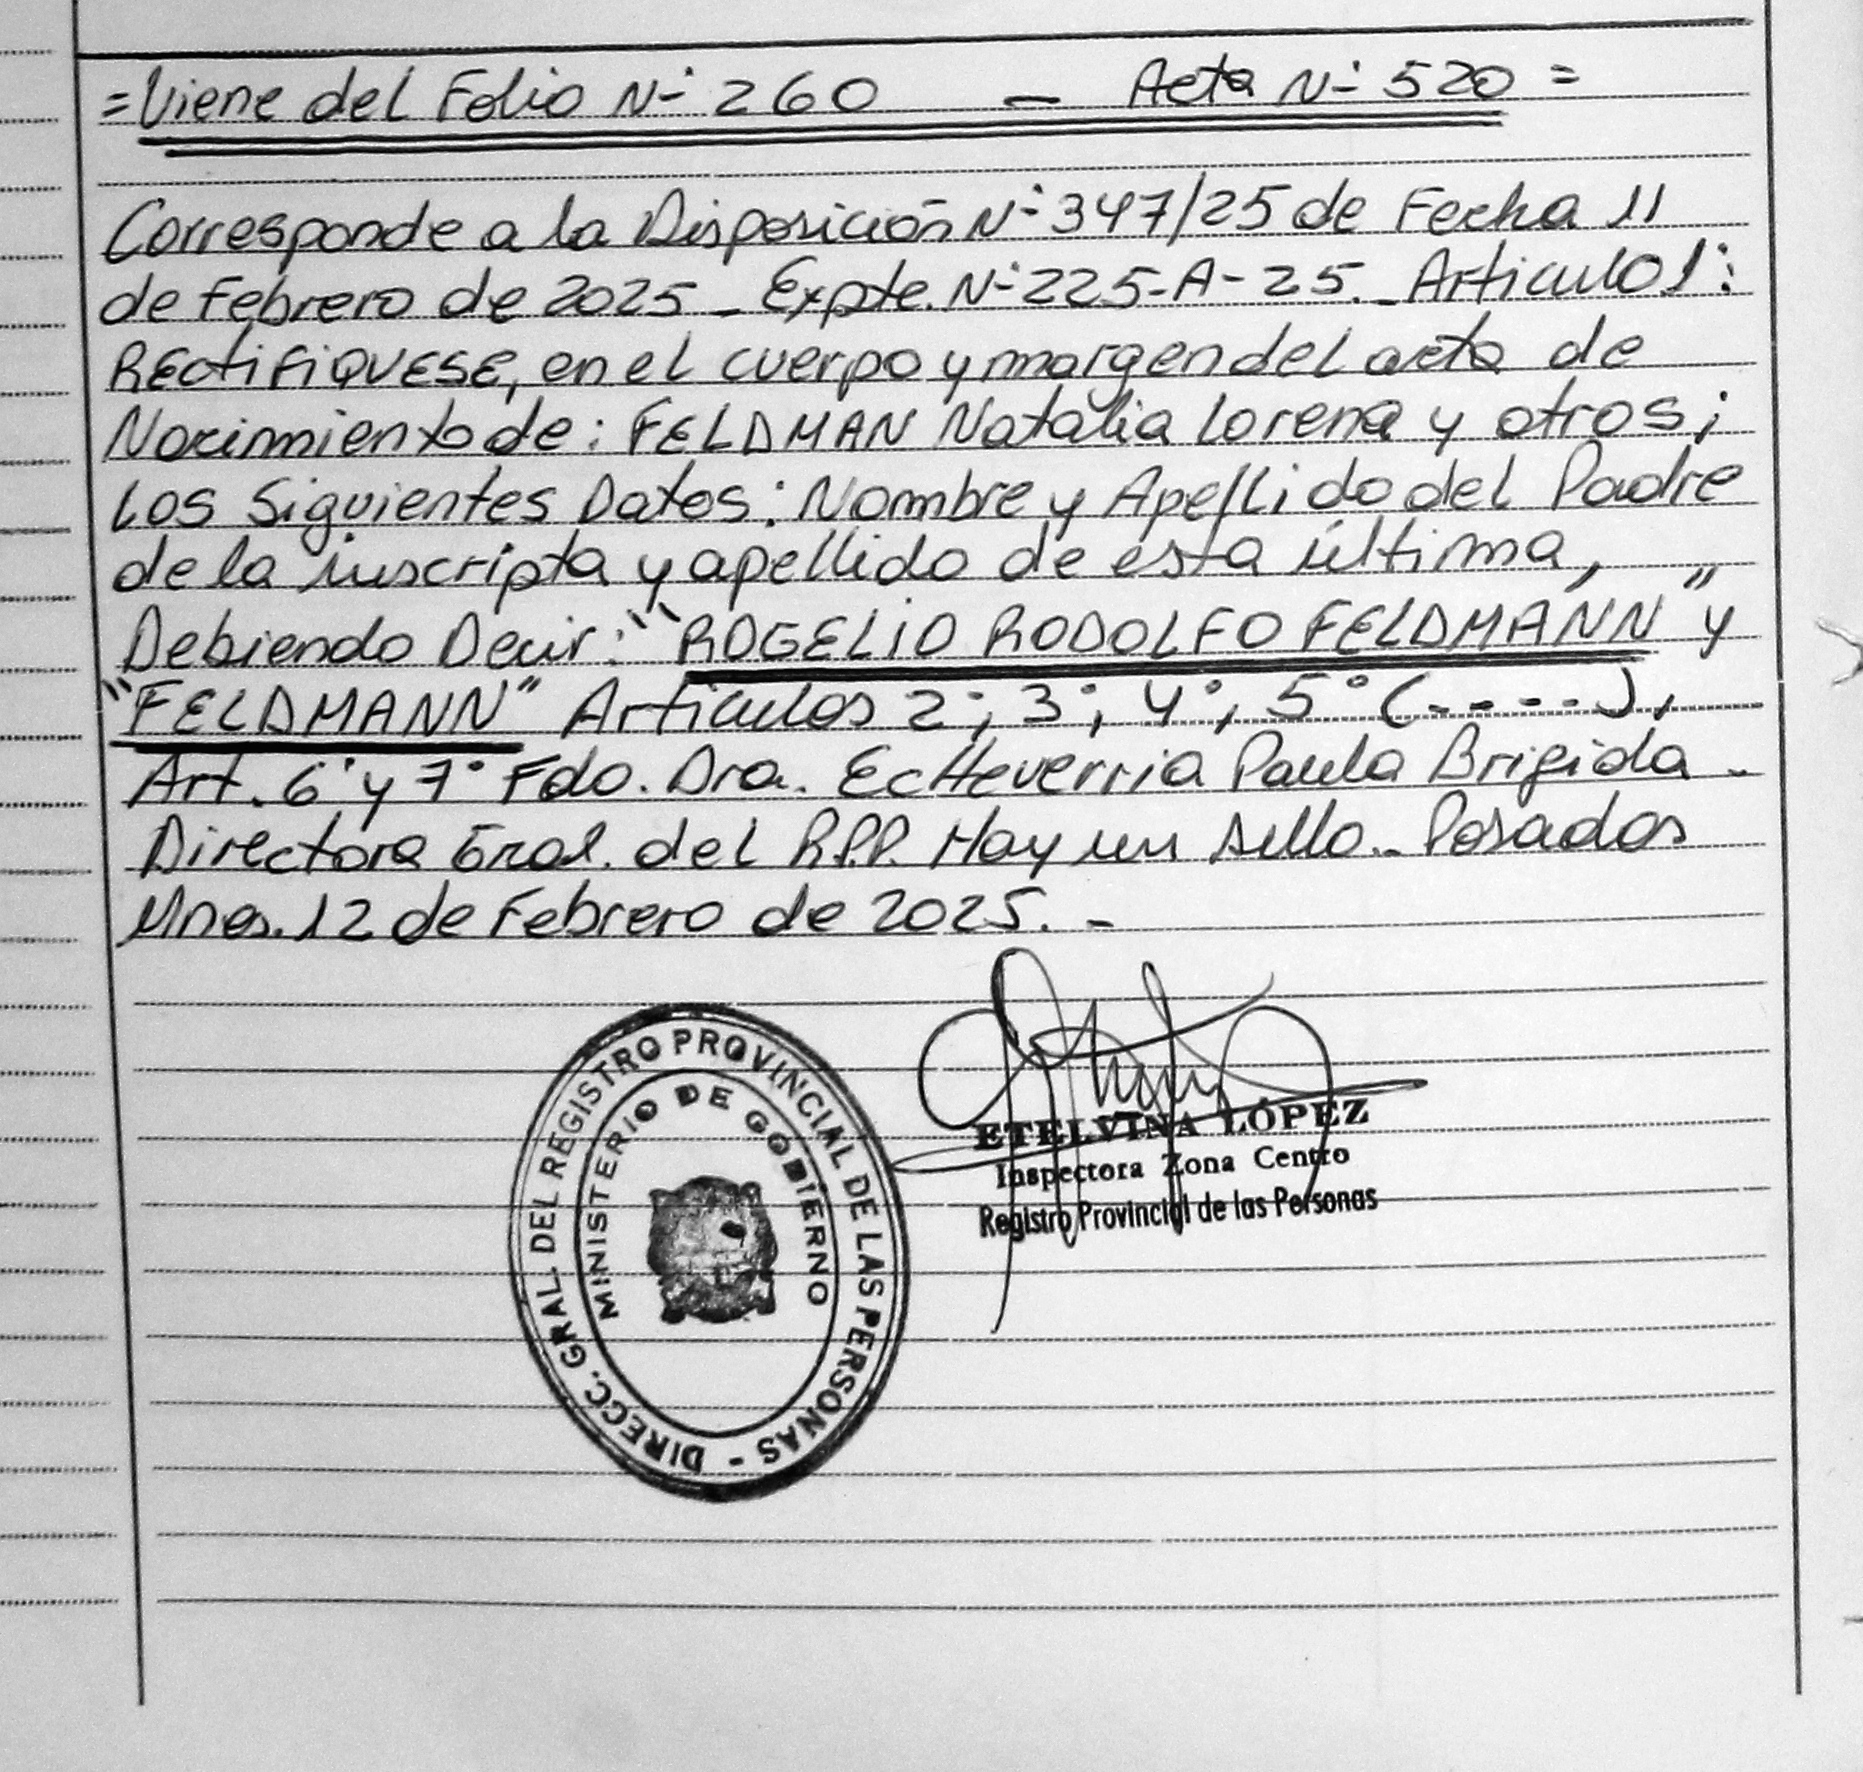 =Viene del Folio N° 260 — Acta N° 520=
Corresponde a la Disposición N° 347/25 de Fecha 11
de Febrero de 2025 - Expte. N° 225-A-25.- Articulo 1°:
RECTIFIQUESE, en el cuerpo y margen del acta de
Nacimiento de: FELDMAN Natalia Lorena y otros;
Los Siguientes Datos: Nombre y Apellido del Padre
de la inscripta y apellido de esta última,
Debiendo Decir: "ROGELIO RODOLFO FELDMANN" y
"FELDMANN" Articulos 2°; 3°; 4°; 5° (----),
Art. 6° y 7° Fdo. Dra. Echeverria Paula Brigida -
Directora Gral. del R.P.P. Hay un sello.- Posadas
Mnes. 12 de Febrero de 2025. -
DIRECC. GRAL. DEL REGISTRO PROVINCIAL DE LAS PERSONAS -
MINISTERIO DE GOBIERNO
ETELVINA LÓPEZ
Inspectora Zona Centro
Registro Provincial de las Personas